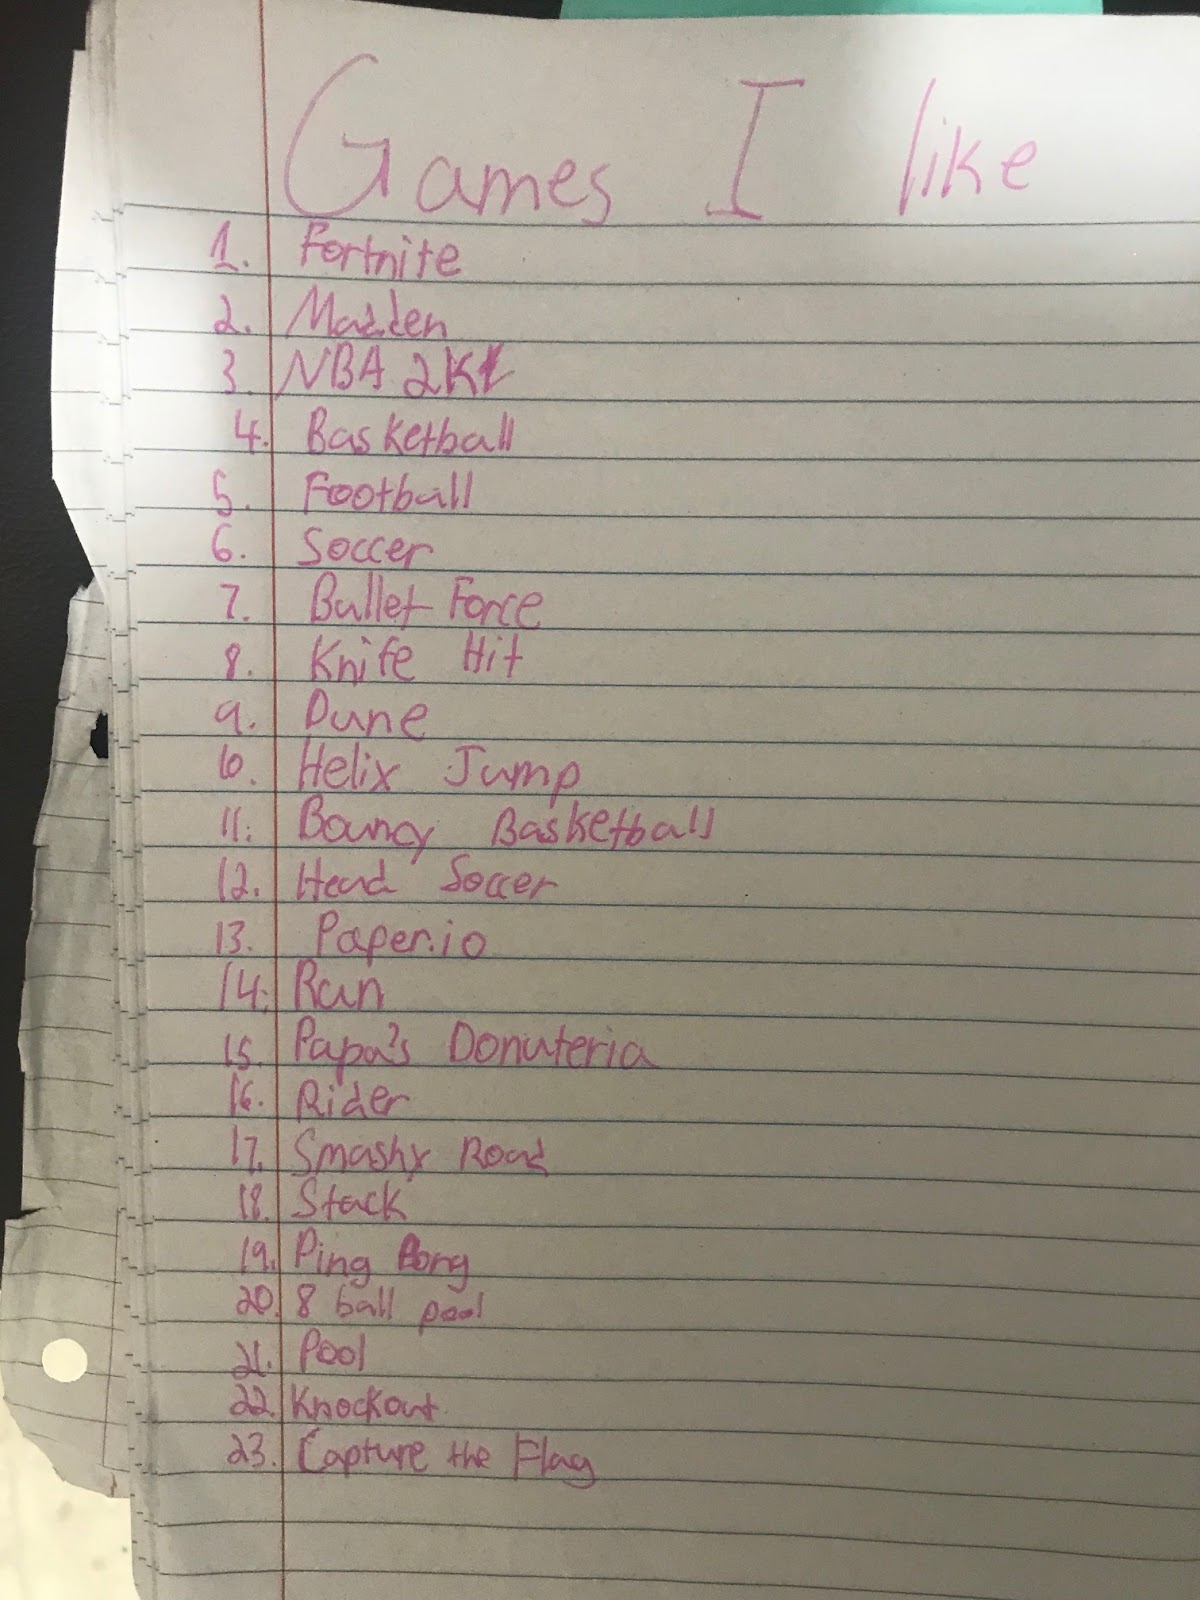 Games I like
1. Fortnite
2. Madden
3. NBA 2K
4. Basketball
5. Football
6. Soccer
7. Bullet Force
8. Knife Hit
9. Dune
10. Helix Jump
11. Bouncy Basketball
12. Head Soccer
13. Paper.io
14. Run
15. Papa's Donuteria
16. Rider
17. Smashy Road
18. Stack
19. Ping Pong
20. 8 ball pool
21. Pool
22. Knockout
23. Capture the Flag